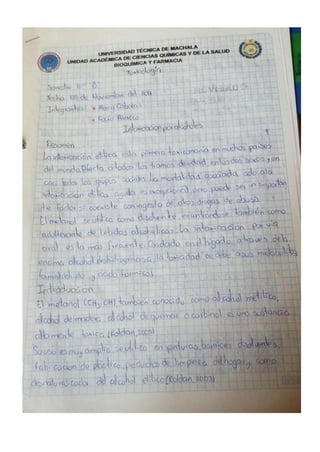 UNIVERSIDAD TÉCNICA DE MACHALA
UNIDAD ACADÉMICA DE CIENCIAS QUÍMICAS Y DE LA SALUD
BIOQUÍMICA Y FARMACIA
Toxicología
Semestre "B"
Fecha de Noviembre del
Integrantes: * Maria
* Rocio
Intoxicacion por alcoholes
Resumen
La intoxicación etílica es la primera toxicomania en muchos paises
del mundo. Afecta a todos los tramos de edad, ambos sexos y en
casi todos los grupos sociales. la mortalidad asociada solo a la
intoxicacion etilica aguda es excepcional pero puede ser un importan
te factor si coexiste con ingesta de otras drogas de abuso.
El metanol se utiliza como disolvente, encontrandose también como
adulterante de bebidas alcoholicas. La intoxicacion por via
oral es la mas frecuente. Oxidado en el higado a traves de la
enzima alcohol deshidrogenasa, la toxicidad se debe a sus metabolitos
formaldehido y acido formico).
Introduccion
El metanol (CH3OH) tambien conocido como alcohol metilico,
alcohol de madera, alcohol de quemar o carbinol, es una sustancia
altamente toxica (Roldan, 2003)
Su uso es muy amplio se utiliza en pinturas, barnices disolventes,
fabricacion de plastico, productos de limpieza del hogar, y como
desnaturalizador del alcohol etilico (Roldan 2003)